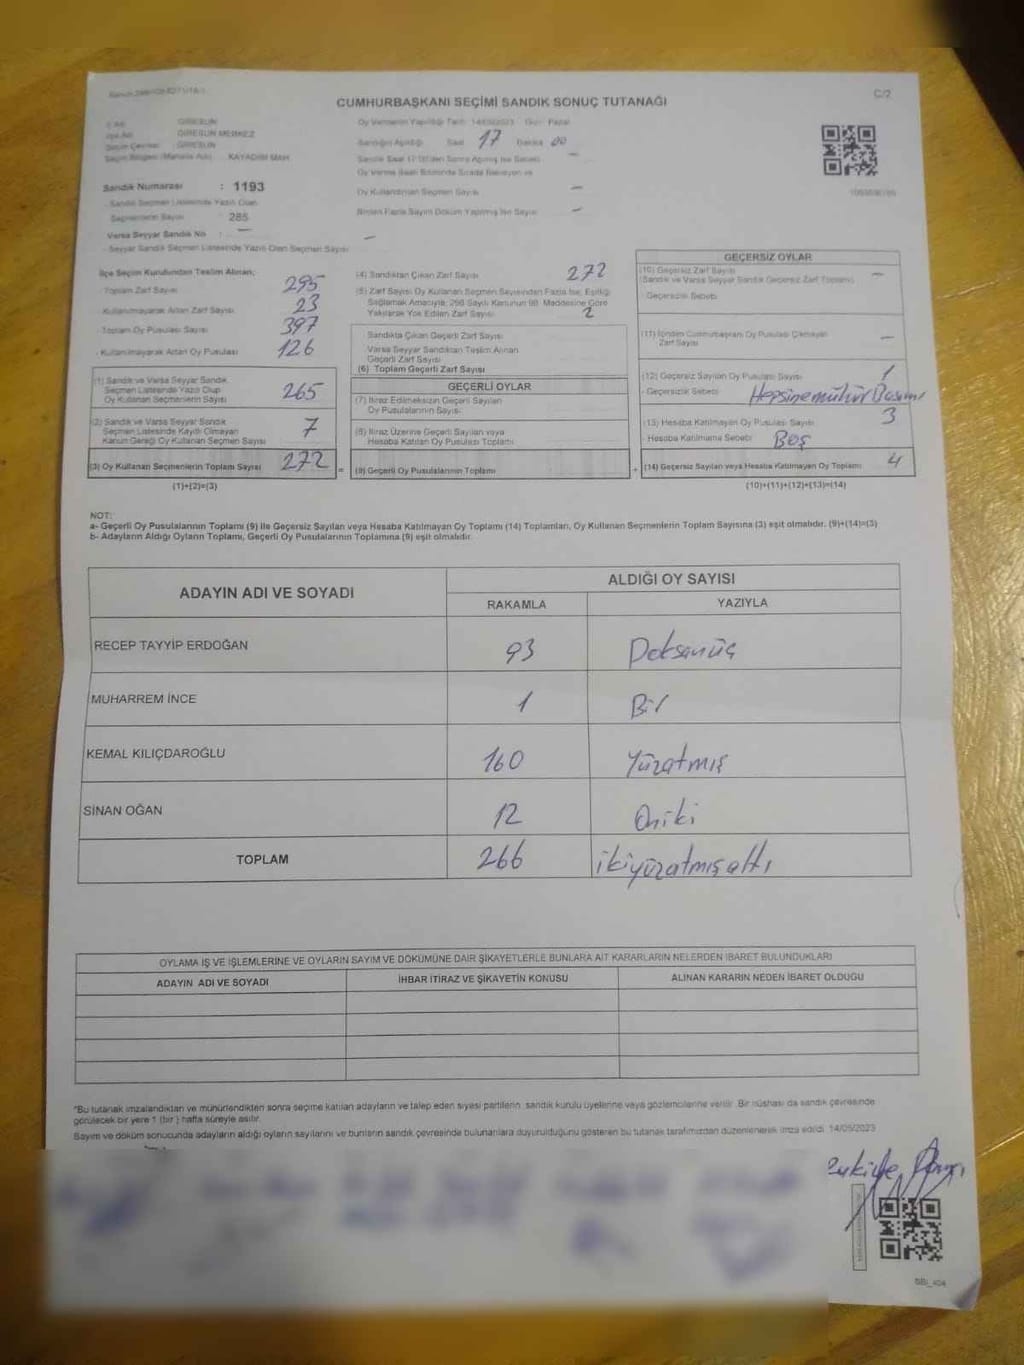 C/2
CUMHURBAŞKANI SEÇİMİ SANDIK SONUÇ TUTANAĞI
GİRESUN
GİRESUN MERKEZ
GİRESUN
KAYADİBİ MAH.
Sandık Numarası : 1193
- Sandık Seçmen Listesinde Yazılı Olan
Seçmenlerin Sayısı 285
Varsa Seyyar Sandık No : —
- Seyyar Sandık Seçmen Listesinde Yazılı Olan Seçmen Sayısı —
Oy Vermenin Yapıldığı Tarih 14/05/2023 Gün: Pazar
Sandığın Açıldığı Saat 17 Dakika 00
Oy Kullandırılan Seçmen Sayısı —
Birden Fazla Sayım Döküm Yapılmış İse Sayısı —
İlçe Seçim Kurulundan Teslim Alınan;
- Toplam Zarf Sayısı 295
- Kullanılmayarak Artan Zarf Sayısı 23
- Toplam Oy Pusulası Sayısı 397
- Kullanılmayarak Artan Oy Pusulası 126
(1) Sandık ve Varsa Seyyar Sandık
Seçmen Listesinde Yazılı Olup
Oy Kullanan Seçmenlerin Sayısı 265
(2) Sandık ve Varsa Seyyar Sandık
Seçmen Listesinde Kayıtlı Olmayan
Kanun Gereği Oy Kullanan Seçmen Sayısı 7
(3) Oy Kullanan Seçmenlerin Toplam Sayısı 272 =
(1)+(2)=(3)
(4) Sandıktan Çıkan Zarf Sayısı 272
(5) Zarf Sayısı Oy Kullanan Seçmen Sayısından Fazla İse, Eşitliği
Sağlamak Amacıyla, 298 Sayılı Kanunun 98. Maddesine Göre
Yakılarak Yok Edilen Zarf Sayısı 2
Sandıkta Çıkan Geçerli Zarf Sayısı
Varsa Seyyar Sandıktan Teslim Alınan
Geçerli Zarf Sayısı
(6) Toplam Geçerli Zarf Sayısı
GEÇERLİ OYLAR
(7) İtiraz Edilmeksizin Geçerli Sayılan
Oy Pusulalarının Sayısı
(8) İtiraz Üzerine Geçerli Sayılan veya
Hesaba Katılan Oy Pusulası Toplamı
(9) Geçerli Oy Pusulalarının Toplamı +
GEÇERSİZ OYLAR
(10) Geçersiz Zarf Sayısı
(Sandık ve Varsa Seyyar Sandık Geçersiz Zarf Toplamı) —
- Geçersizlik Sebebi
(11) İçinden Cumhurbaşkanı Oy Pusulası Çıkmayan
Zarf Sayısı —
(12) Geçersiz Sayılan Oy Pusulası Sayısı 1
- Geçersizlik Sebebi Hepsine mühür basımı
(13) Hesaba Katılmayan Oy Pusulası Sayısı 3
- Hesaba Katılmama Sebebi Boş
(14) Geçersiz Sayılan veya Hesaba Katılmayan Oy Toplamı 4
(10)+(11)+(12)+(13)=(14)
NOT:
a- Geçerli Oy Pusulalarının Toplamı (9) ile Geçersiz Sayılan veya Hesaba Katılmayan Oy Toplamı (14) Toplamları, Oy Kullanan Seçmenlerin Toplam Sayısına (3) eşit olmalıdır. (9)+(14)=(3)
b- Adayların Aldığı Oyların Toplamı, Geçerli Oy Pusulalarının Toplamına (9) eşit olmalıdır.
ADAYIN ADI VE SOYADI
ALDIĞI OY SAYISI
RAKAMLA YAZIYLA
RECEP TAYYİP ERDOĞAN 93 Doksanüç
MUHARREM İNCE 1 Bir
KEMAL KILIÇDAROĞLU 160 Yüzatmış
SİNAN OĞAN 12 Oniki
TOPLAM 266 ikiyüzatmışaltı
OYLAMA İŞ VE İŞLEMLERİNE VE OYLARIN SAYIM VE DÖKÜMÜNE DAİR ŞİKAYETLERLE BUNLARA AİT KARARLARIN NELERDEN İBARET BULUNDUKLARI
ADAYIN ADI VE SOYADI İHBAR İTİRAZ VE ŞİKAYETİN KONUSU ALINAN KARARIN NEDEN İBARET OLDUĞU
"Bu tutanak imzalandıktan ve mühürlendikten sonra seçime katılan adayların ve talep eden siyasi partilerin sandık kurulu üyelerine veya gözlemcilerine verilir. Bir nüshası da sandık çevresinde
görülecek bir yere 1 (bir) hafta süreyle asılır.
Sayım ve döküm sonucunda adayların aldığı oyların sayılarını ve bunların sandık çevresinde bulunanlara duyurulduğunu gösteren bu tutanak tarafımızdan düzenlenerek imza edildi. 14/05/2023